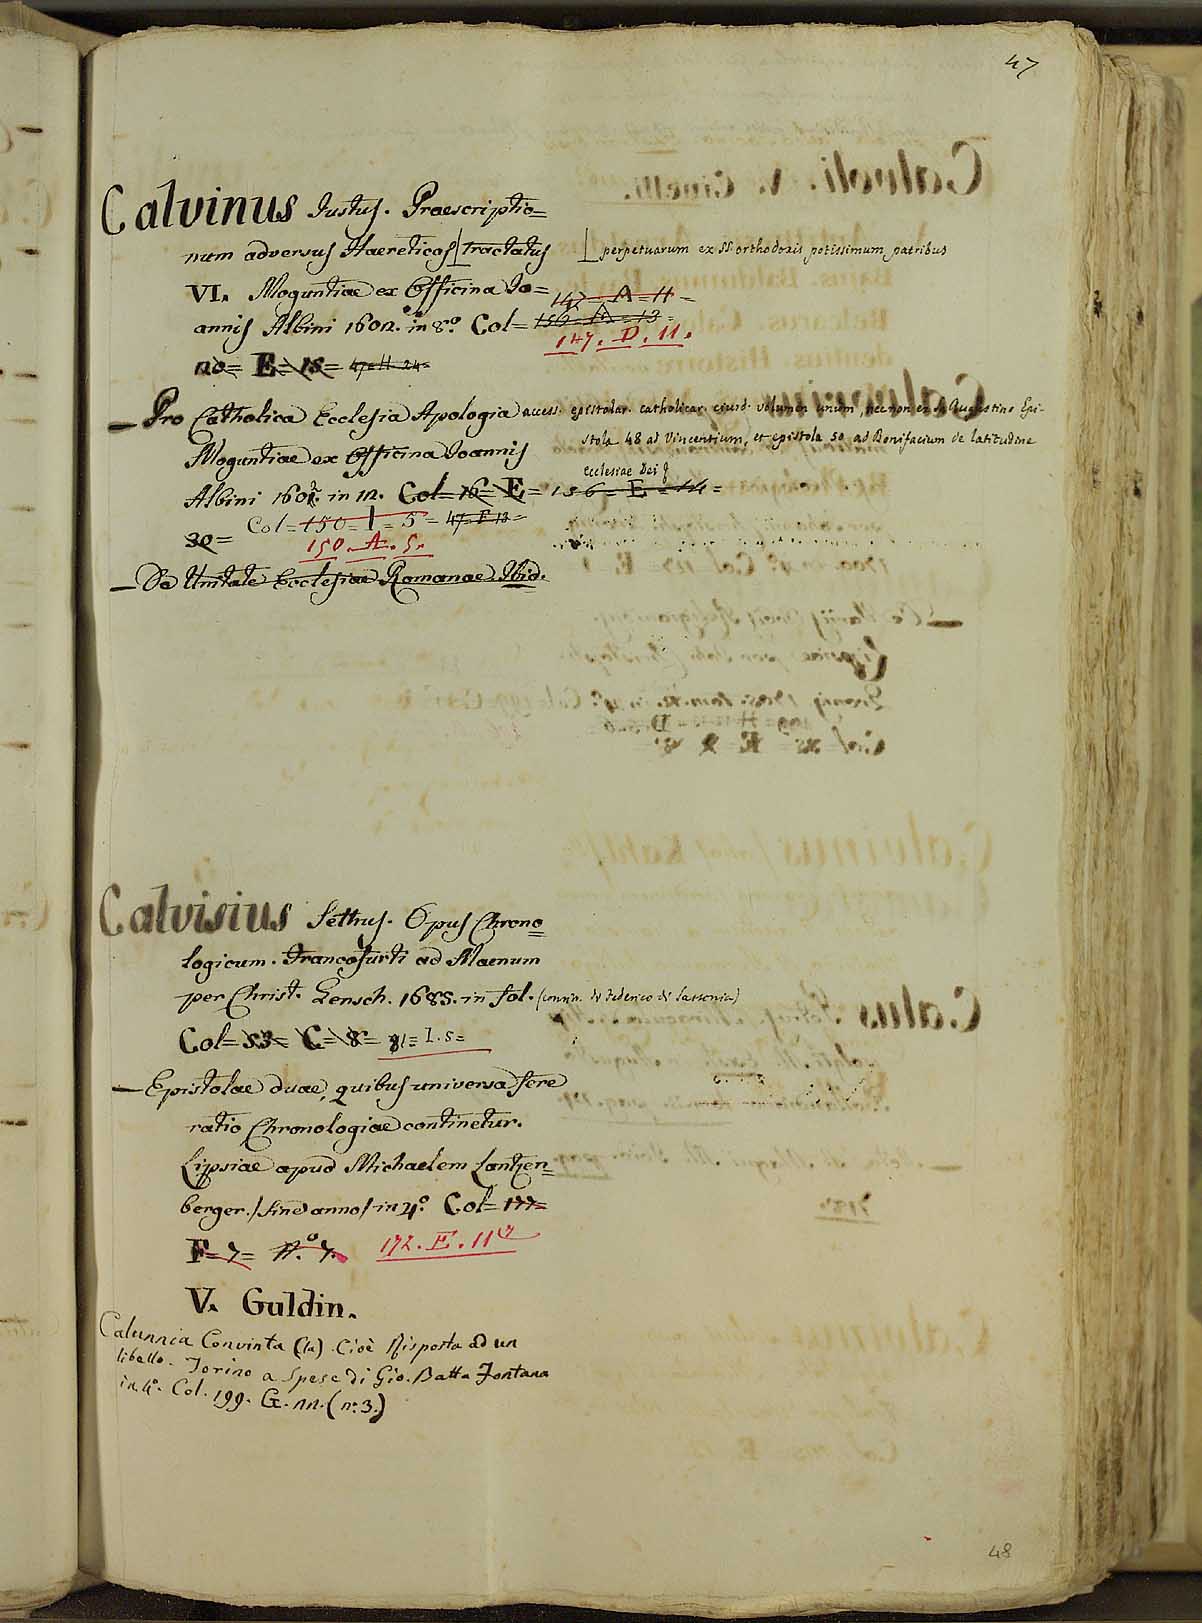 47
Calvinus Justus. Praescriptio=
num adversus Haereticos | tractatus | perpetuarum ex SS orthodoxis potissimum patribus
VI. Moguntiae ex Officina Jo=
147 = A = 11 =
annis Albini 1602. in 8.º Col= 150 = A = 13 =
147. D. 11.
120= E= 18= 47= H= 24=
— Pro Catholica Ecclesia Apologia access. epistolar. catholicar. eiusd. volumen unum, necnon ex S. Augustino Epi-
stola 48 ad Vincentium, et epistola 50 ad Bonifacium de latitudine
Moguntiae ex Officina Joannis
Ecclesiae Dei
Albini 1602. in 12. Col= 16= E= 156= E= 14=
Col= 150= I= 5= 47= F 13=
30=
150. A. 5.
— De Unitate Ecclesiae Romanae. Ibid.
Calvisius Sethus. Opus Chrono=
logicum. Francofurti ad Maenum
per Christ. Gensch. 1685. in fol. (connin. di Federico di Sassonia)
Col= 53= C= 8= 81= I. 5=
— Epistolae duae, quibus universa fere
ratio Chronologiae continetur.
Lipsiae apud Michaelem Lantzen=
berger. / sine anno / in 4.º Col= 177=
F= 7= n.º 7. 172. E. 11
V. Guldin.
Calunnia Convinta (la). Cioè Risposta ad un
libello. Torino a spese di Gio. Batta Fontana
in 4º. Col. 199. G. 22. (nº. 3.)
48